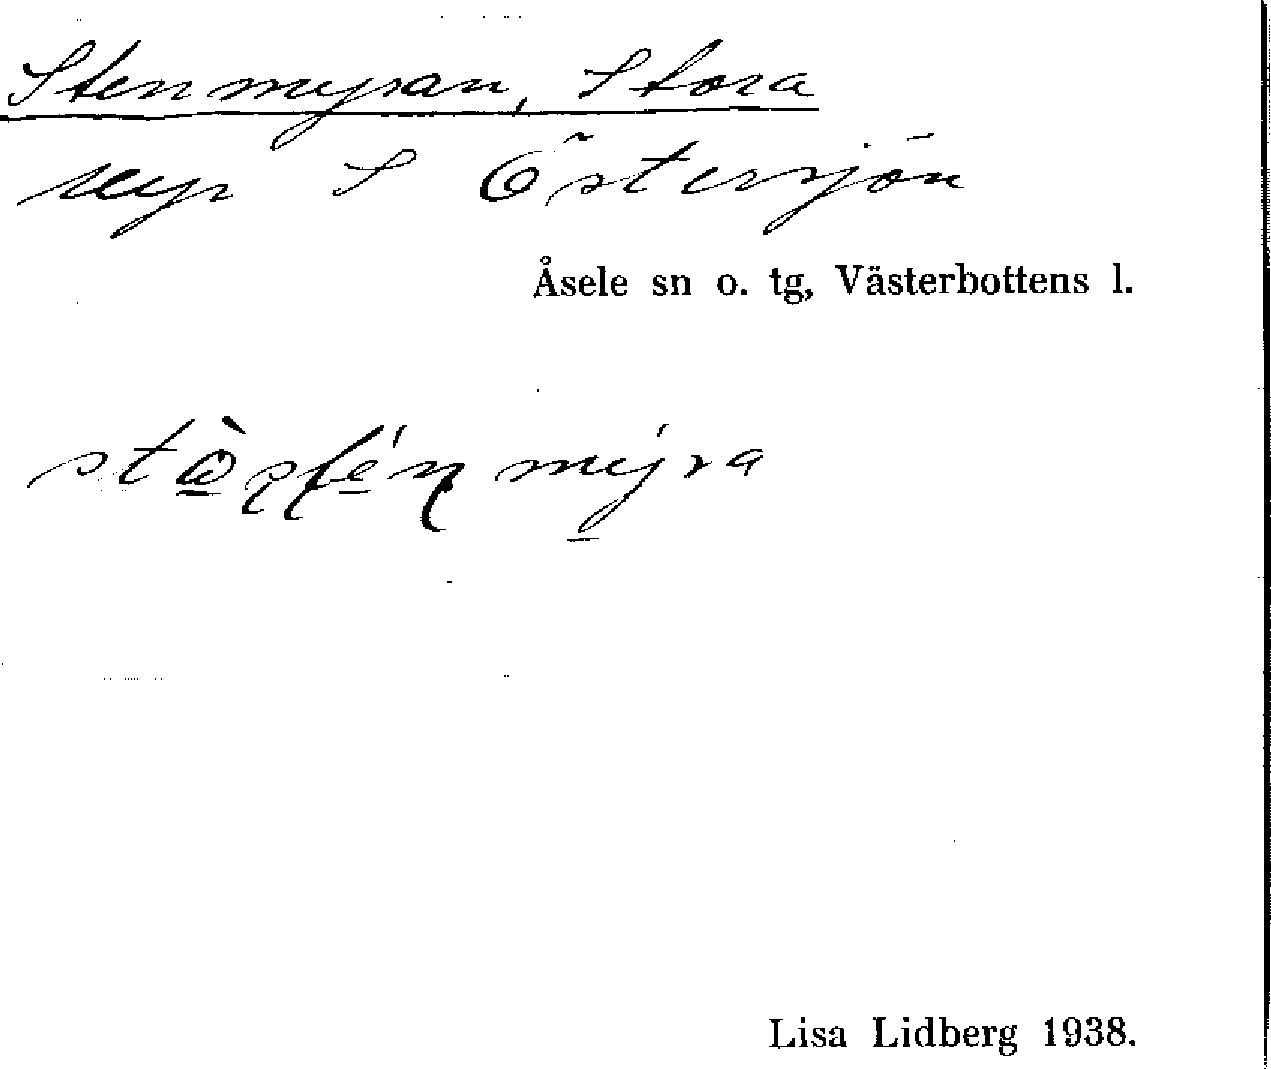 Stenmyran, Stora
myr S Östersjön
Åsele sn o. tg, Västerbottens l.
Lisa Lidberg 1938.